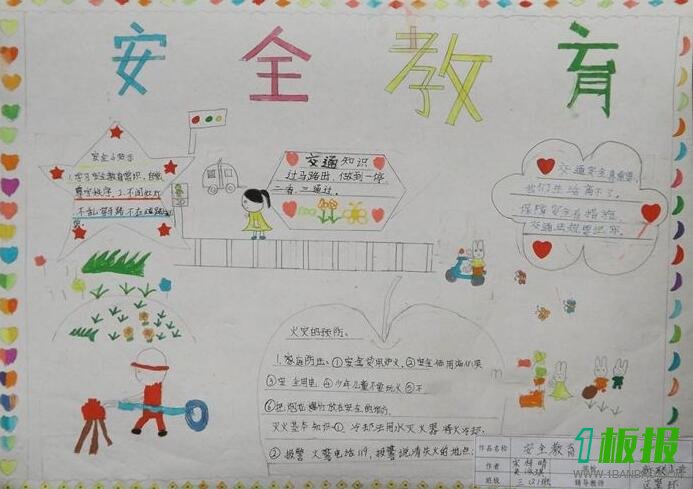 安全教育
安全小知识
1.学习安全教育常识,自觉
遵守秩序。2.不闯红灯
不乱穿马路不在道路
交通知识
过马路时,做到一停
二看三通过。
交通安全真重要,
我们生活离不了。
保障安全有措施,
交通法规要记牢。
火灾的预防:
1.家庭防火:①安全使用炉火,②安全使用
③安全用电 ④少年儿童不要玩火⑤不
⑥把烟花爆竹放在安全的地方
灭火基本知识①,冷却法用水灭火器将火冷却.
②报警 火警电话119,报警说清失火的地点.
作品名称 安全教育
作者
班级 三(2)班
辅导教师
1板报
WWW.1BANBAO.COM